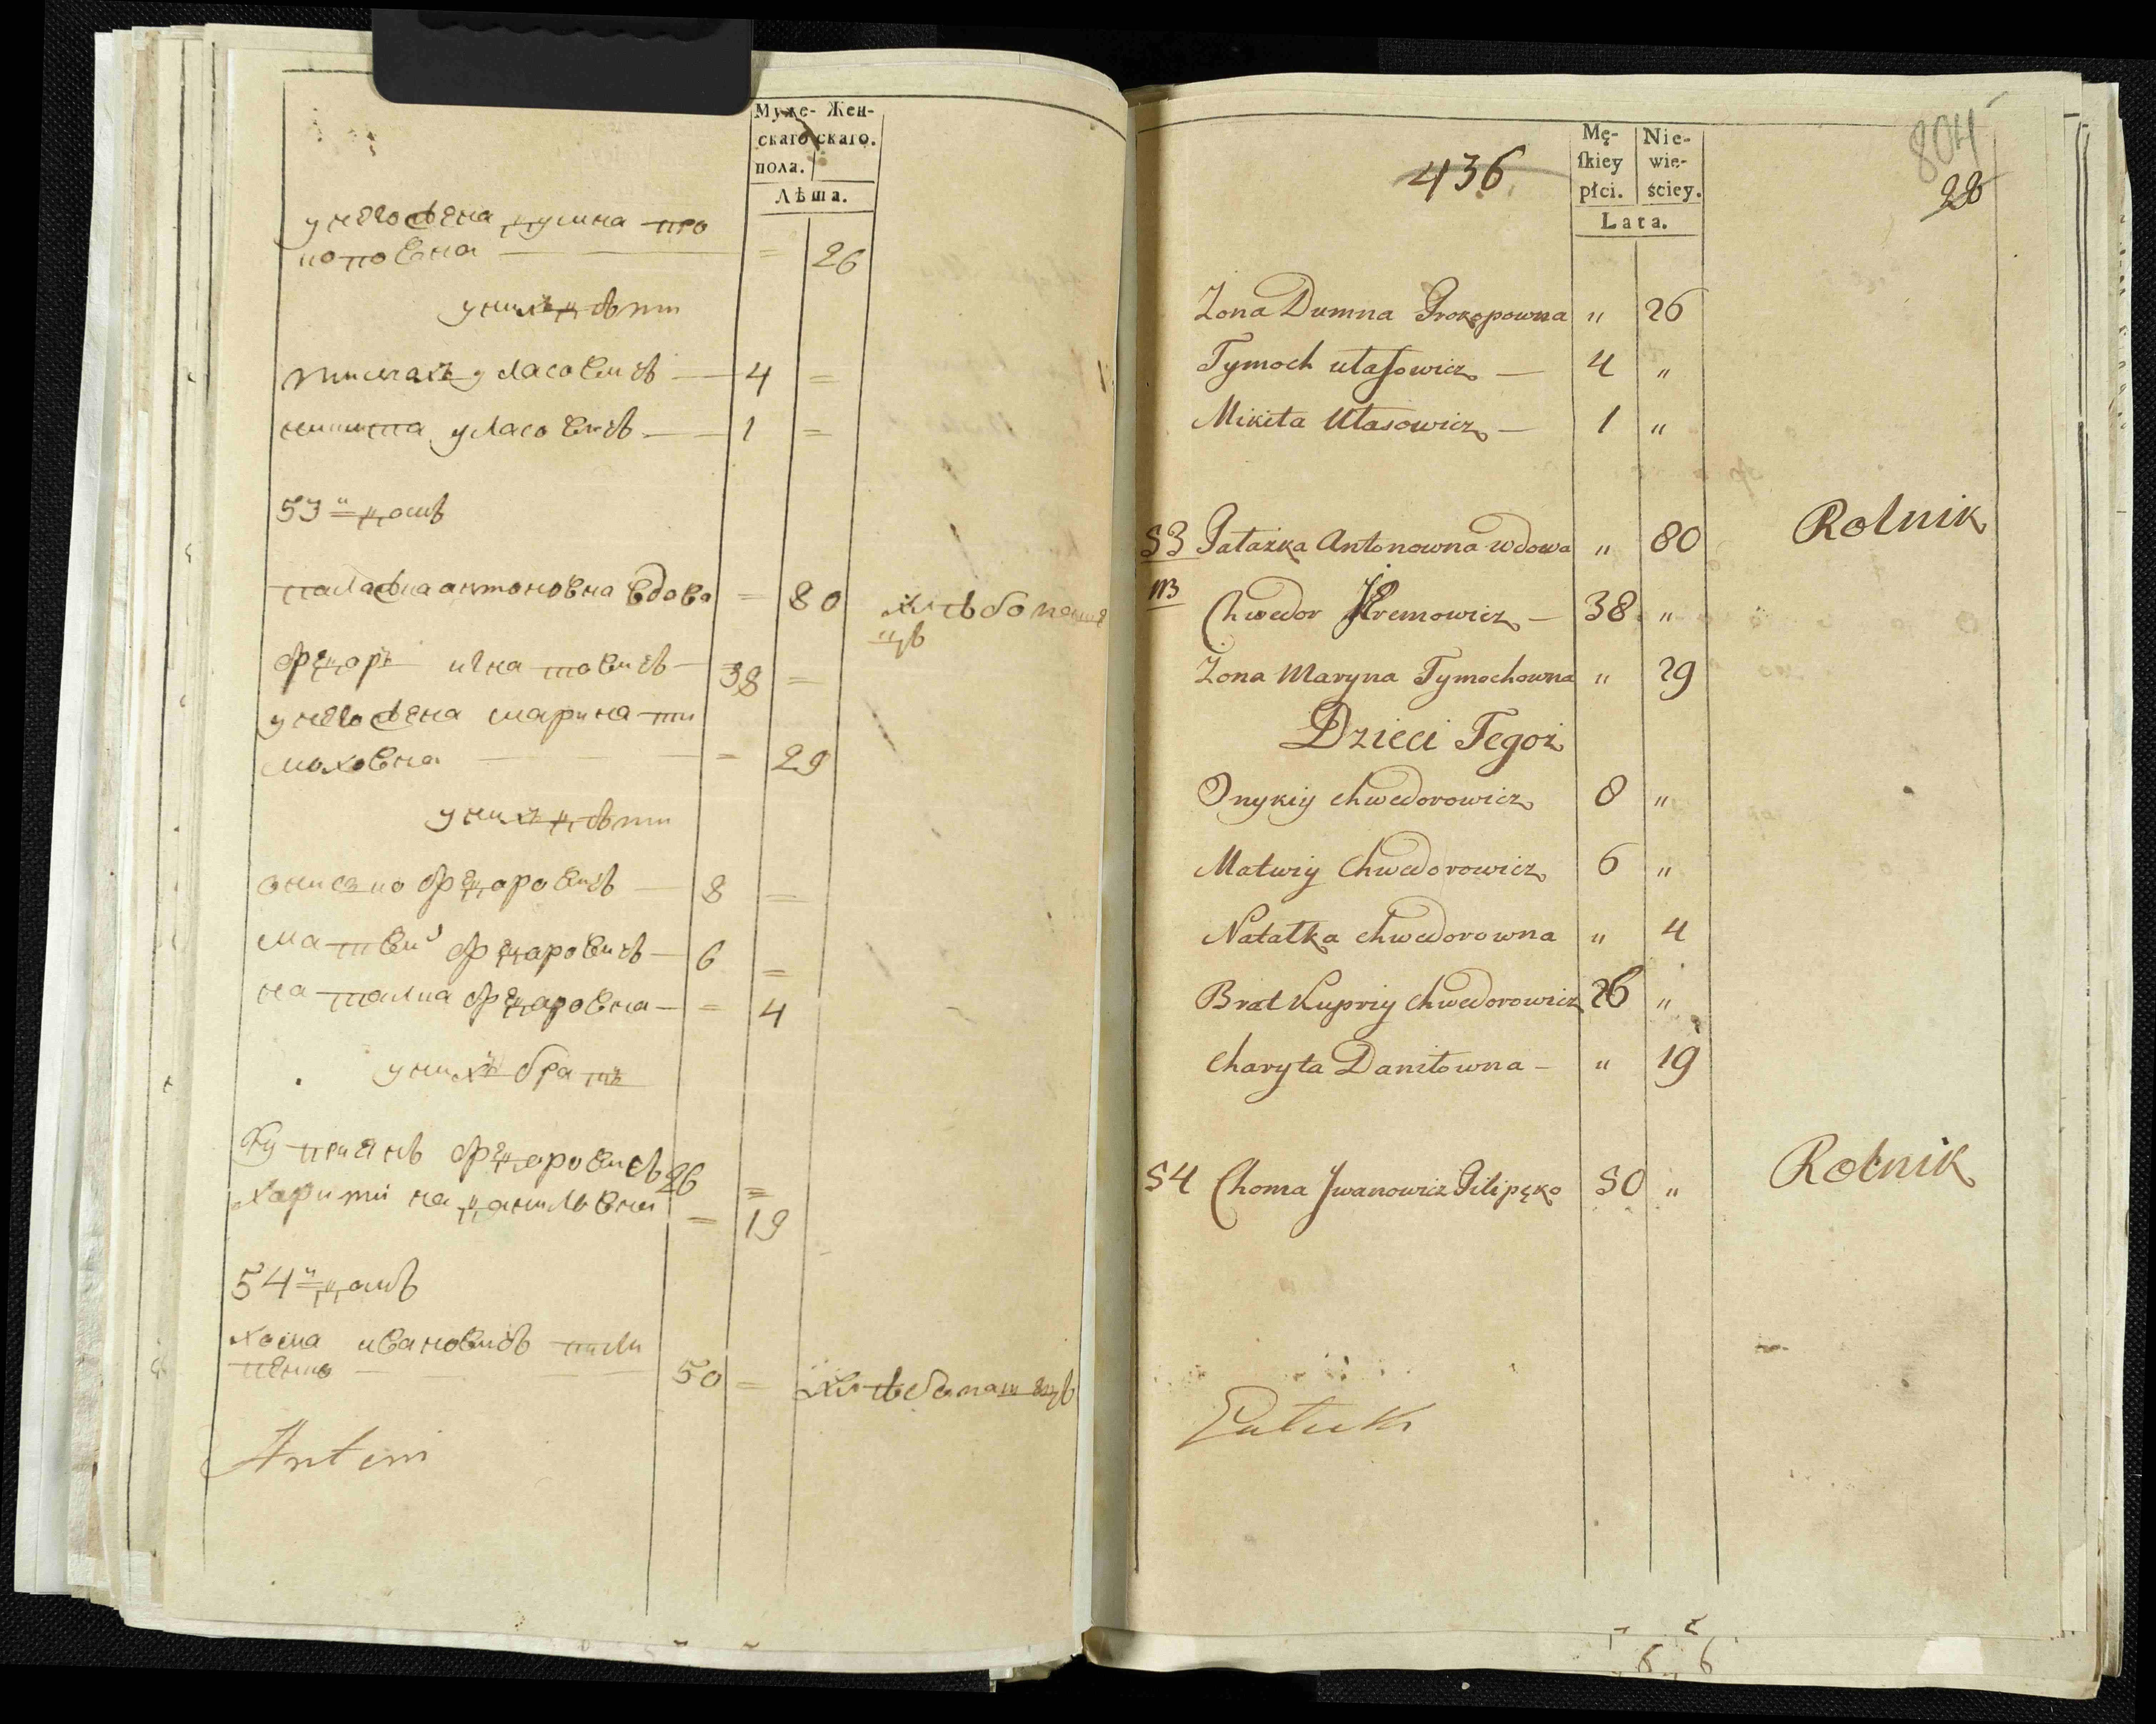 Муже- Жен-
скаго скаго.
пола.
Лѣта.
у него жена думна про
коповна — 26
у них дѣти
тимахъ уласовичъ — 4 =
микита уласовичъ — 1 =
53й домъ
палажка антоновна вдова = 80 хлѣбопаше
цъ
федоръ игнатовичъ — 38 =
у него жена марина ти
моховна — = 29
у нихъ дѣти
онисько федоровичъ — 8 =
матвий федоровичъ — 6 =
наталка федоровна — = 4
у нихъ братъ
Куприянъ федоровичъ 26 =
харитина даниловна = 19
54й домъ
хома ивановичъ пили
пенко — 50 = Хлѣбопашецъ
Antoni
436
Mę- Nie-
ſkiey wie-
płci. ściey.
Lata.
804
28
Żona Dumna Prokopowna " 26
Tymoch Ułasowicz — 4 "
Mikita Ułasowicz — 1 "
53 Pałażka Antonowna wdowa " 80 Rolnik
113 Chwedor Jhremowicz — 38 "
Żona Maryna Tymochowna " 29
Dzieci Tegoż
Onykiy Chwedorowicz 8 "
Matwiy Chwedorowicz 6 "
Natałka Chwedorowna " 4
Brat Kupriy Chwedorowicz 26 "
Charyta Daniłowna — " 19
54 Choma Jwanowicz Pilipęko 50 " Rolnik
6 6